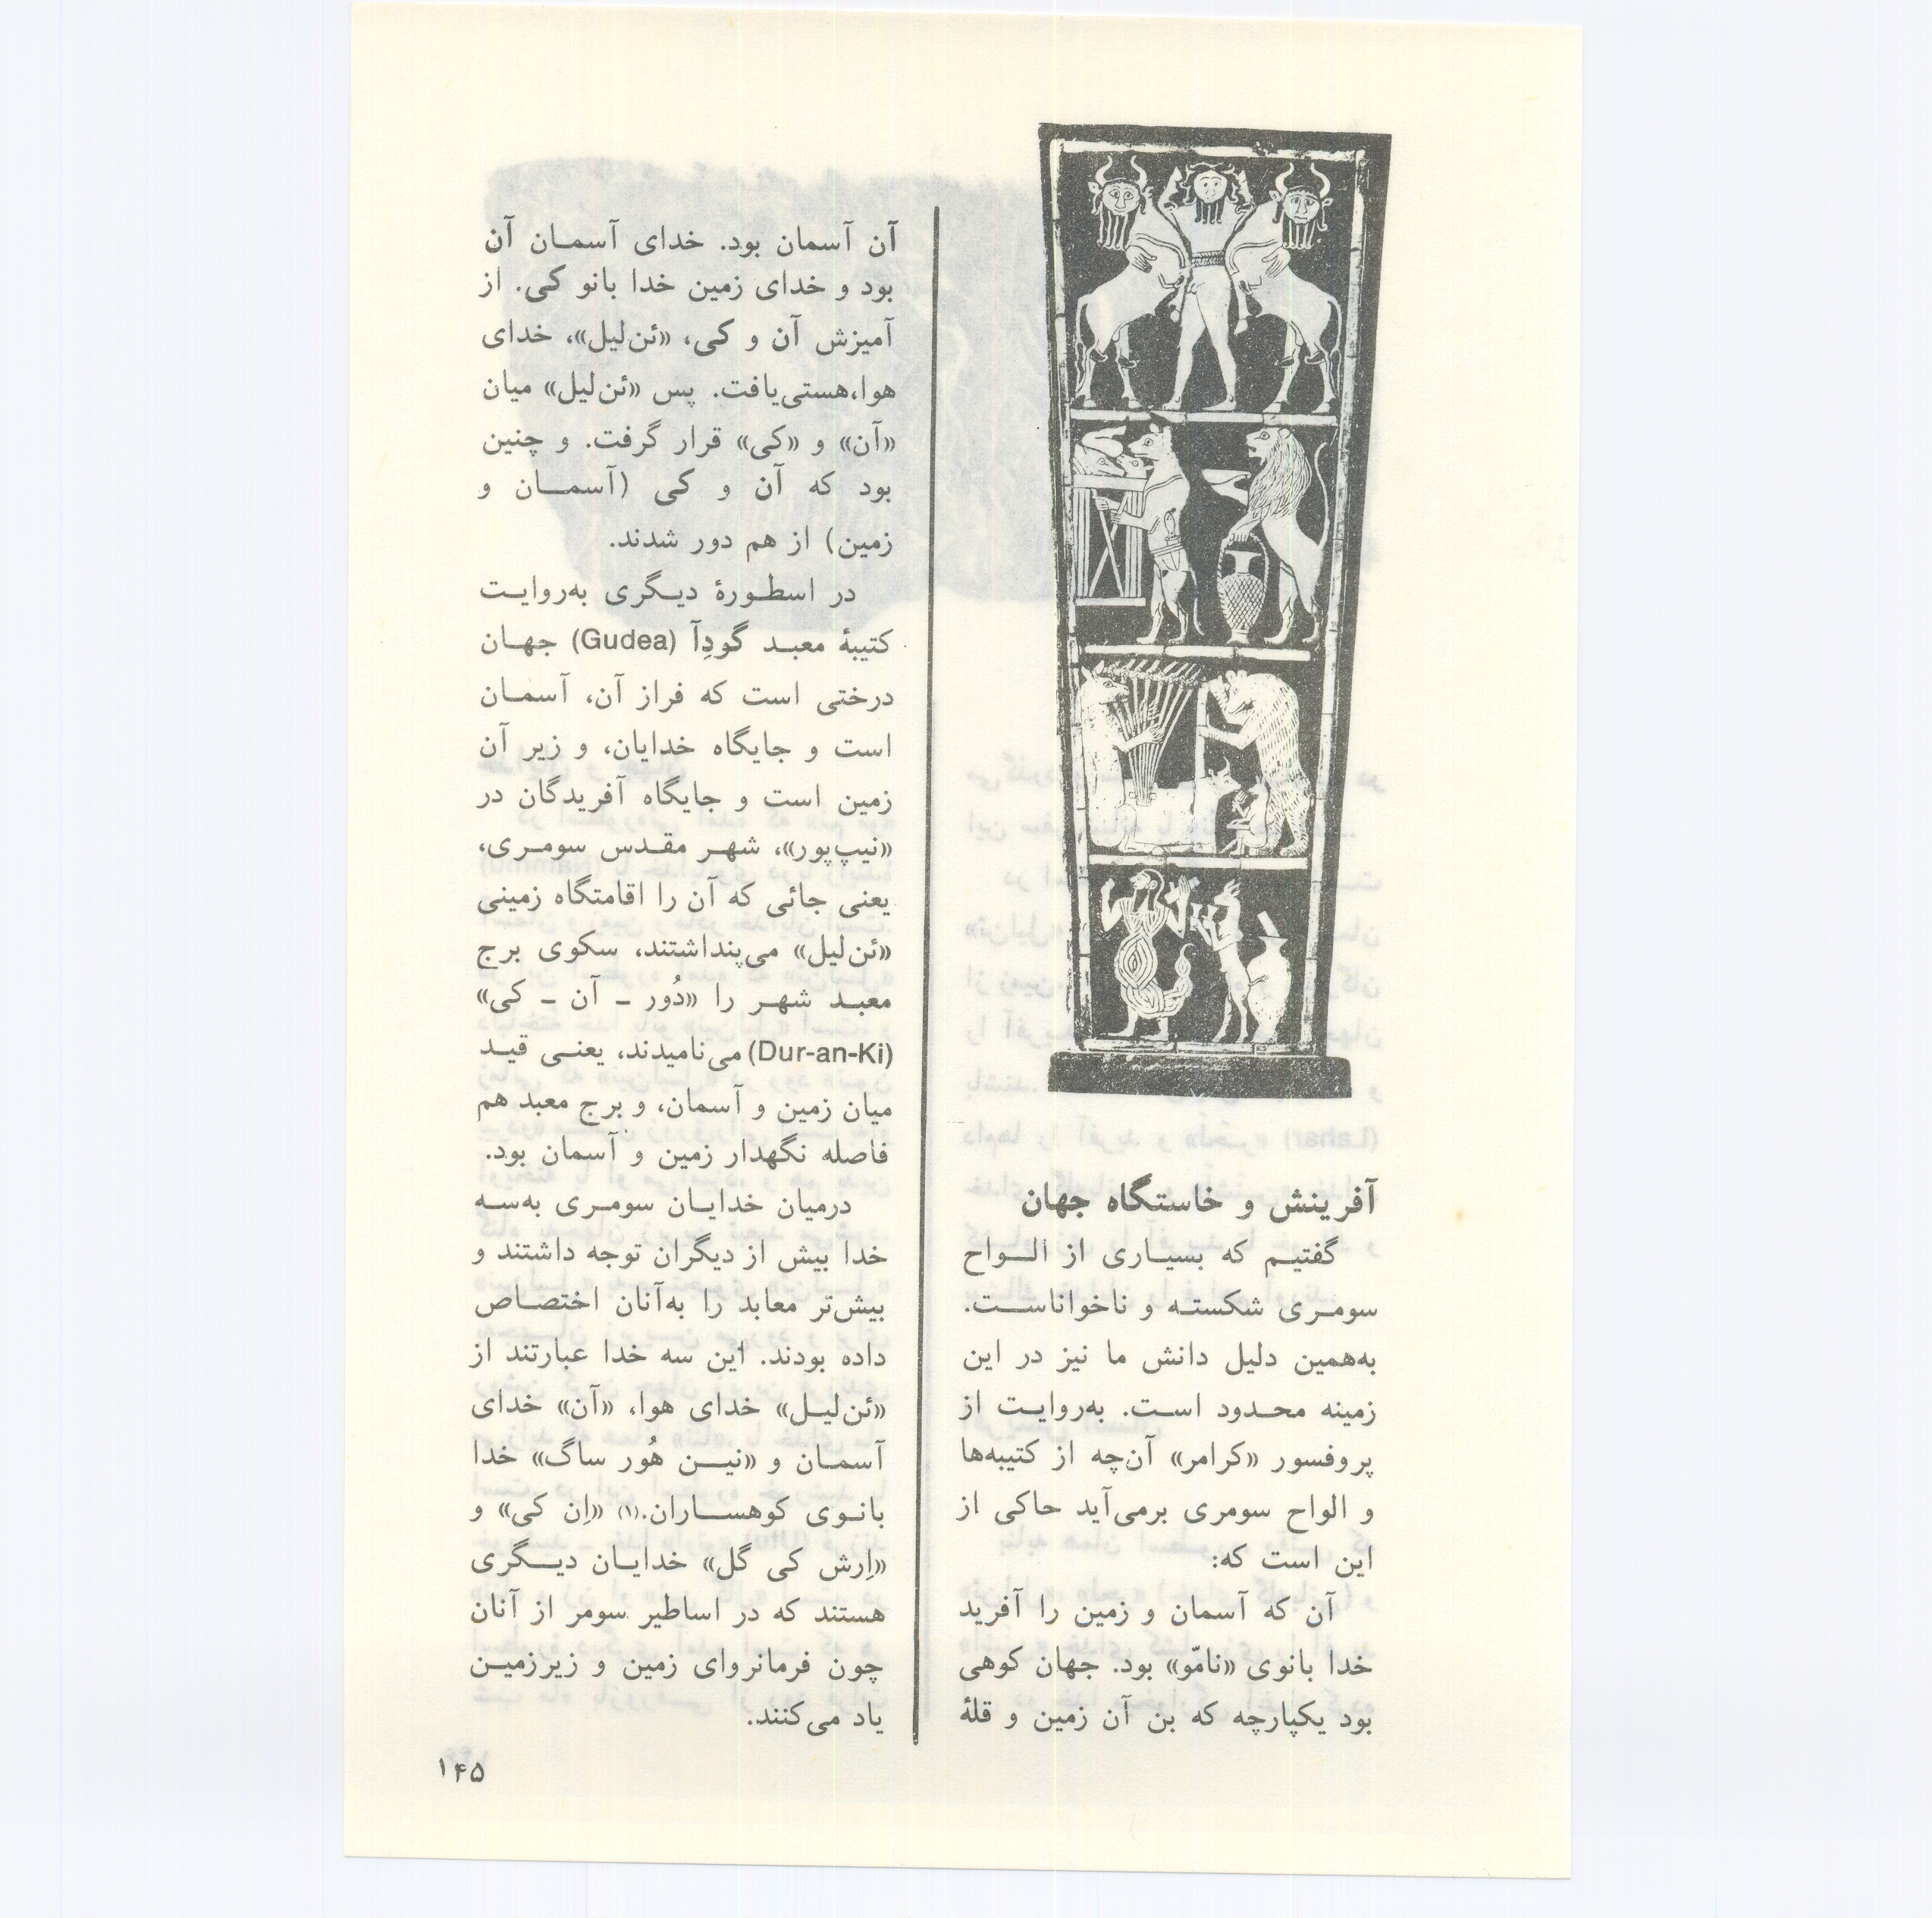 آفرینش و خاستگاه جهان
گفتیم که بسیاری از الواح
سومری شکسته و ناخواناست.
به‌همین دلیل دانش ما نیز در این
زمینه محدود است. به‌روایت از
پروفسور «کرامر» آن‌چه از کتیبه‌ها
و الواح سومری برمی‌آید حاکی از
این است که:
آن که آسمان و زمین را آفرید
خدا بانوی «نامّو» بود. جهان کوهی
بود یکپارچه که بن آن زمین و قلهٔ
آن آسمان بود. خدای آسمان آن
بود و خدای زمین خدا بانو کی. از
آمیزش آن و کی، «ئن‌لیل»، خدای
هوا،هستی‌یافت. پس «ئن‌لیل» میان
«آن» و «کی» قرار گرفت. و چنین
بود که آن و کی (آسمان و
زمین) از هم دور شدند.
در اسطورهٔ دیگری به‌روایت
کتیبهٔ معبد گودِآ (Gudea) جهان
درختی است که فراز آن، آسمان
است و جایگاه خدایان، و زیر آن
زمین است و جایگاه آفریدگان در
«نیپ‌پور»، شهر مقدس سومری،
یعنی جائی که آن را اقامتگاه زمینی
«ئن‌لیل» می‌پنداشتند، سکوی برج
معبد شهر را «دُور ـ آن ـ کی»
(Dur-an-Ki) می‌نامیدند، یعنی قید
میان زمین و آسمان، و برج معبد هم
فاصله نگهدار زمین و آسمان بود.
درمیان خدایان سومری به‌سه
خدا بیش از دیگران توجه داشتند و
بیش‌تر معابد را به‌آنان اختصاص
داده بودند. این سه خدا عبارتند از
«ئن‌لیل» خدای هوا، «آن» خدای
آسمان و «نین هُور ساگ» خدا
بانوی کوهساران.(۱) «اِن کی» و
«اِرش کی گل» خدایان دیگری
هستند که در اساطیر سومر از آنان
چون فرمانروای زمین و زیرزمین
یاد می‌کنند.
۱۴۵